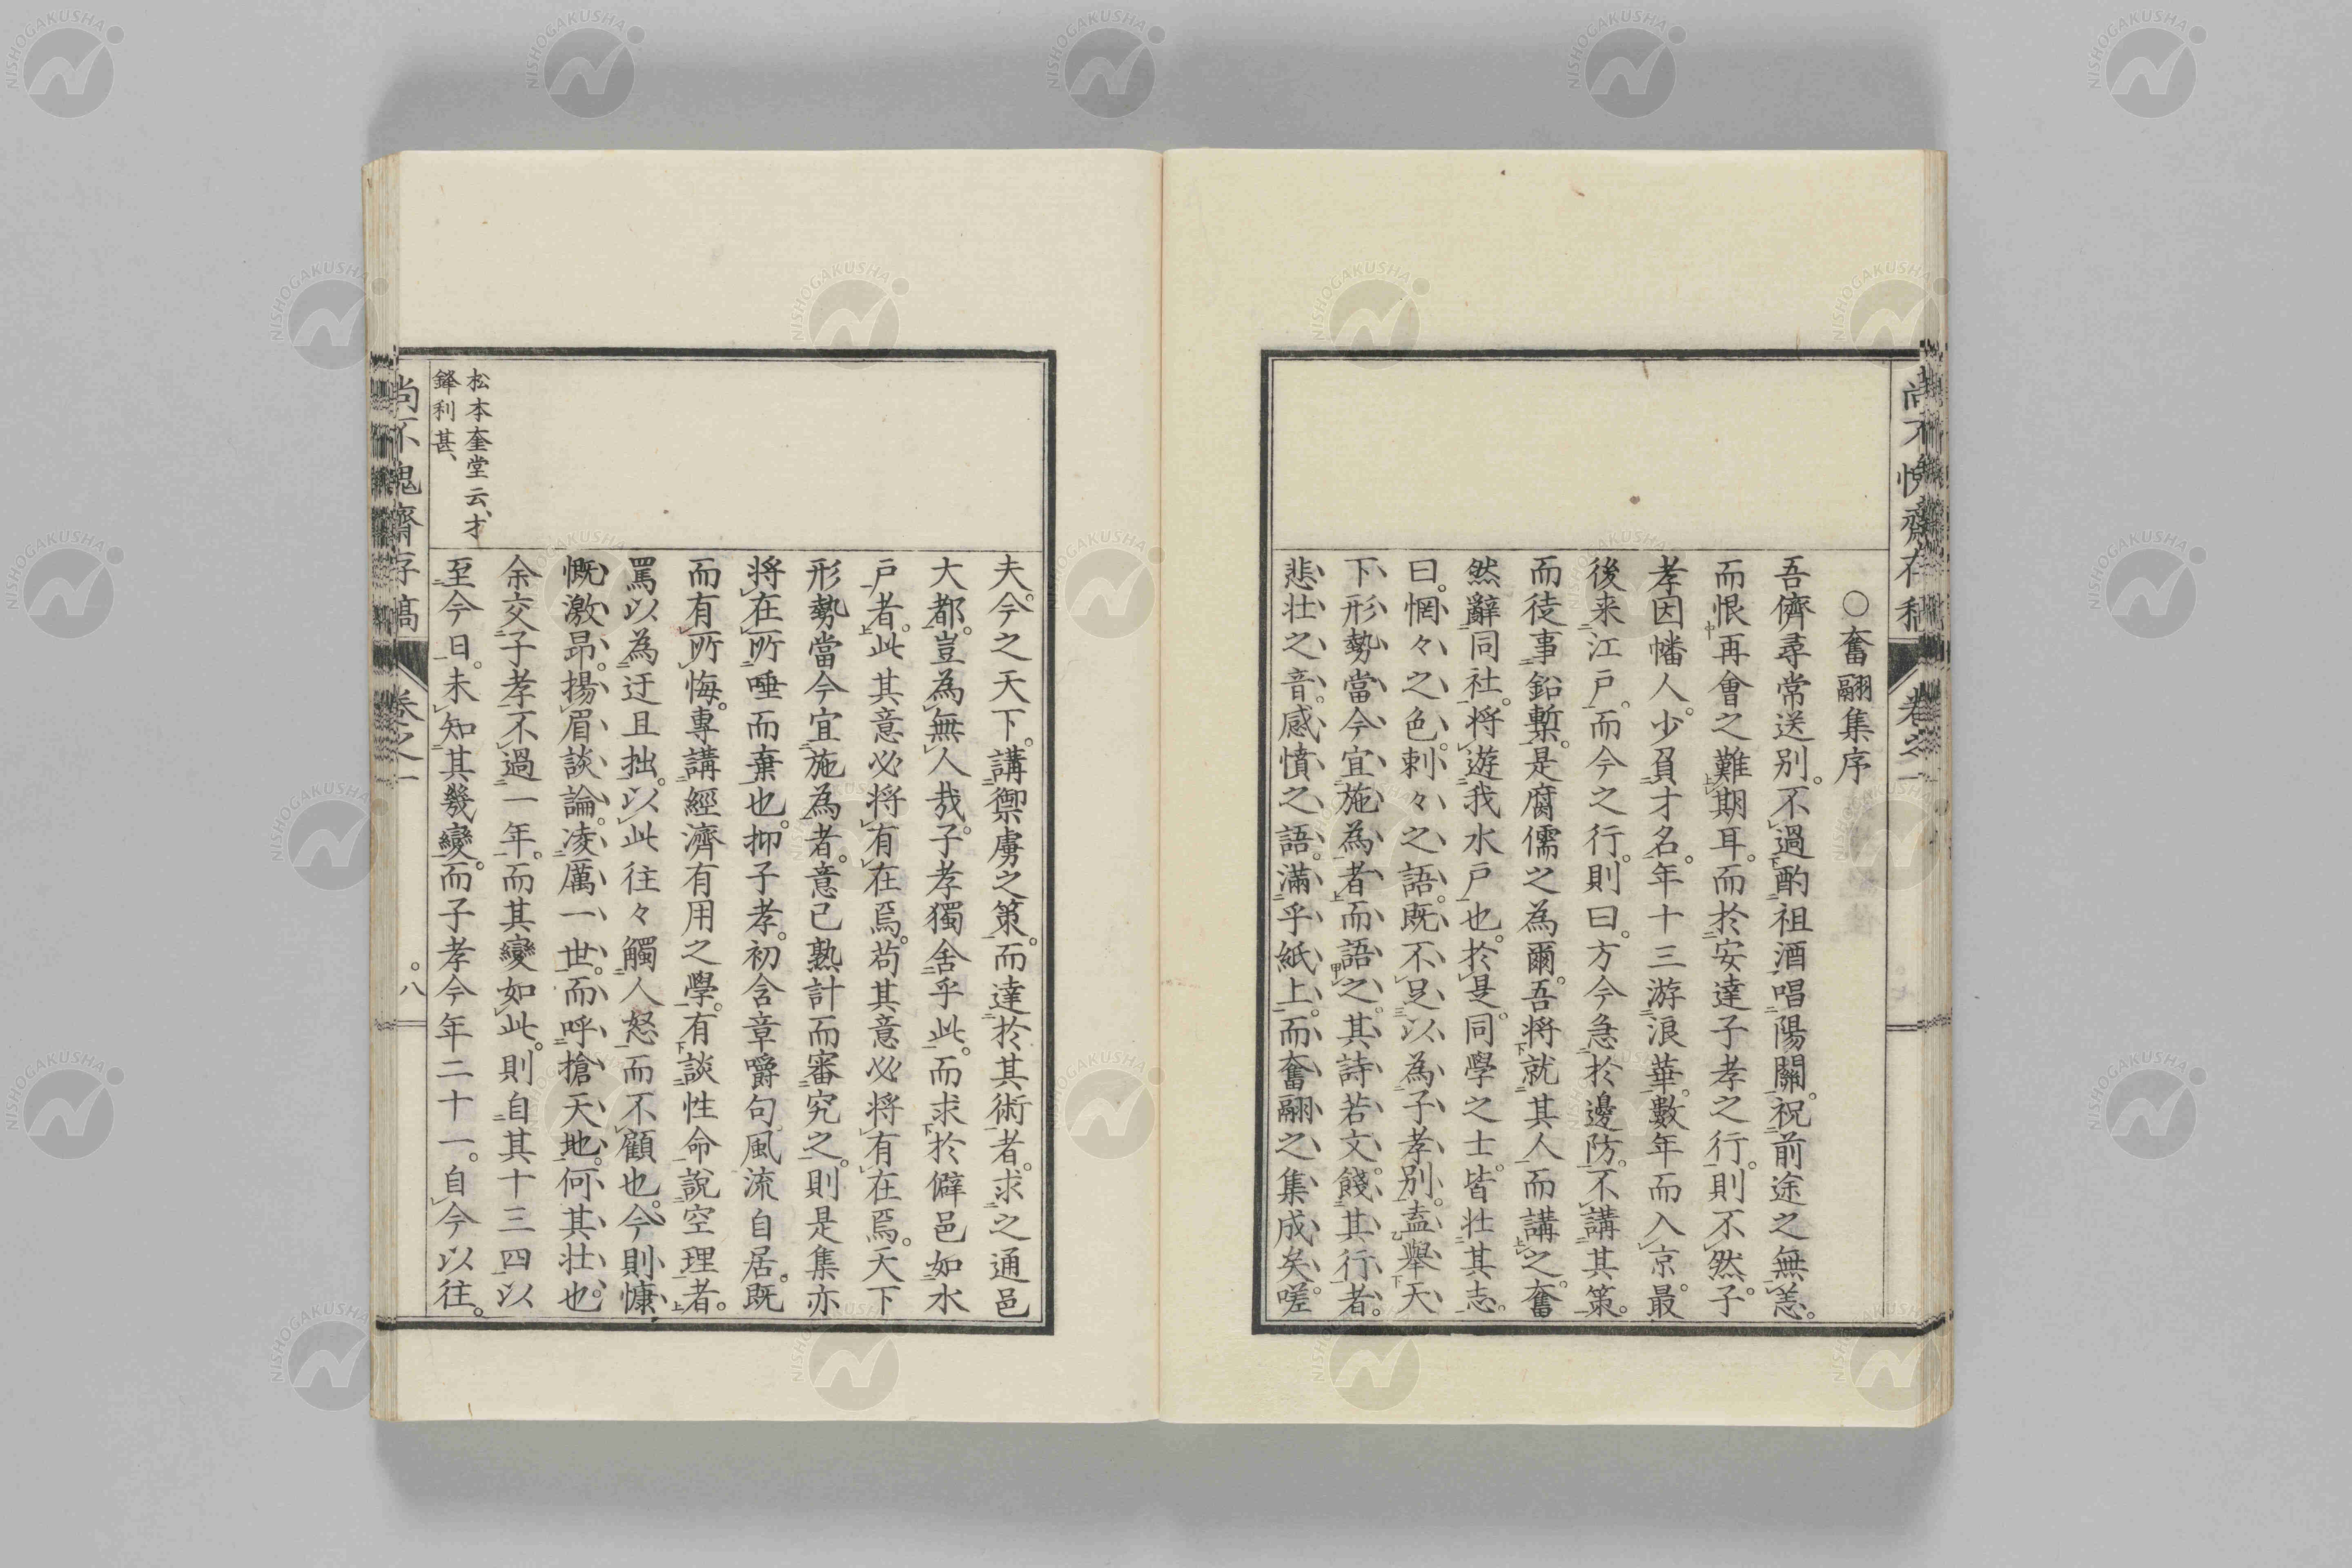 〇奮翮集序
吾儕尋常送別。不過酌祖酒唱陽關。祝前途之無恙。
而恨再會之難期耳。而於安達子孝之行。則不然。子
孝因幡人。少負才名。年十三游浪華。數年而入京。最
後来江戸。而今之行。則曰。方今急於邊防。不講其策。
而徒事鉛槧。是腐儒之為爾。吾将就其人而講之。奮
然辭同社。将遊我水戸也。於是同學之士。皆壮其志。
曰。惘々之色。刺々之語。既不足以為子孝別。盍舉天
下形勢當今宜施為者而語之。其詩若文。餞其行者。
悲壮之音。感憤之語。滿乎紙上。而奮翮之集成矣。嗟
夫。今之天下。講禦虜之策。而達於其術者。求之通邑
大都。豈為無人哉。子孝獨舍乎此。而求於僻邑如水
戸者。此其意必将有在焉。苟其意必将有在焉。天下
形勢當今宜施為者。意已熟計而審究之。則是集亦
将在所唾而棄也。抑子孝。初含章嚼句。風流自居。既
而有所悔。專講經濟有用之學。有談性命說空理者。
罵以為迂且拙。以此往々觸人怒而不顧也。今則慷
慨激昂。揚眉談論。凌厲一世。而呼搶天地。何其壮也。
余交子孝不過一年。而其變如此。則自其十三四以
至今日。未知其幾變。而子孝今年二十一。自今以往。
松本奎堂云、才
鋒利甚、
尚不愧齋存稿
卷之一
八
NISHOGAKUSHA